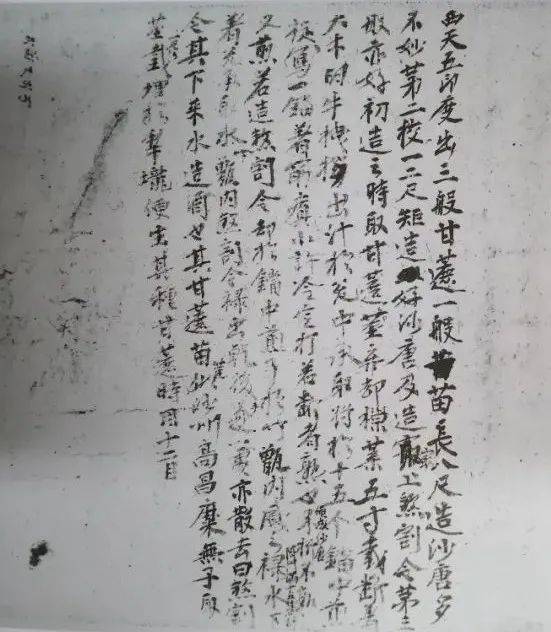 西天五印度出三般甘蔗一般苗長八尺造沙唐多
不妙第二挍一二尺矩造好沙唐及造最上煞割令第三
般亦好初造之時取甘蔗莖弃却梢葉五寸截斷著
大木臼牛拽拶出汁於瓮中承取將於十五个鐺中煎
旋寫一鐺著筯瘨小許冷定打若斷者熟也便成沙唐不折不熟
又煎若造煞割令却於鐺中煎了於竹甑内盛之禄水下
著瓮承取水甑内煞割令禄出後亦散去曰煞割
令其下来水造酒也其甘蔗苗莖似沙州高昌糜無子取
莖一尺截埋於犁壠便生其種甘蔗時用十二月